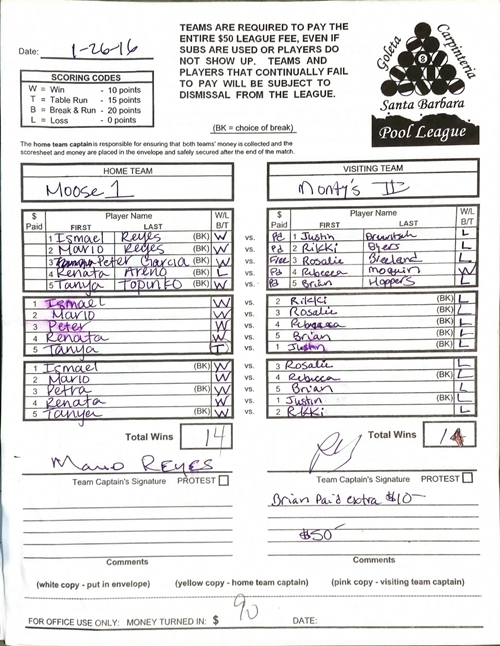 Date: 1-26-16
TEAMS ARE REQUIRED TO PAY THE
ENTIRE $50 LEAGUE FEE, EVEN IF
SUBS ARE USED OR PLAYERS DO
NOT SHOW UP. TEAMS AND
PLAYERS THAT CONTINUALLY FAIL
TO PAY WILL BE SUBJECT TO
DISMISSAL FROM THE LEAGUE.
(BK = choice of break)
SCORING CODES
W = Win - 10 points
T = Table Run - 15 points
B = Break & Run - 20 points
L = Loss - 0 points
Goleta
Carpinteria
8
Santa Barbara
Pool League
The home team captain is responsible for ensuring that both teams' money is collected and the
scoresheet and money are placed in the envelope and safely secured after the end of the match.
HOME TEAM
Moose 1
$ Paid Player Name W/L
FIRST LAST B/T
1 Ismael Reyes (BK) W vs.
2 Mario Reyes (BK) W vs.
3 Peter Garcia (BK) W vs.
4 Renata Areno (BK) L vs.
5 Tanya Topinko (BK) W vs.
1 Ismael W vs.
2 Mario W vs.
3 Peter W vs.
4 Renata W vs.
5 Tanya T vs.
1 Ismael (BK) W vs.
2 Mario W vs.
3 Petra (BK) W vs.
4 Renata W vs.
5 Tanya (BK) W vs.
Total Wins 14
Mario Reyes
Team Captain's Signature PROTEST
Comments
VISITING TEAM
Monty's II
$ Paid Player Name W/L
FIRST LAST B/T
Pd 1 Justin L
Pd 2 Rikki Byers L
Free 3 Rosalie L
Pd 4 Rebecca Moquin W
Pd 5 Brian Hoppers L
2 Rikki (BK) L
3 Rosalie (BK) L
4 Rebecca (BK) L
5 Brian (BK) L
1 Justin (BK) L
3 Rosalie L
4 Rebecca (BK) L
5 Brian L
1 Justin (BK) L
2 Rikki L
Total Wins 1
Team Captain's Signature PROTEST
Brian Paid extra $10-
$50-
Comments
(white copy - put in envelope) (yellow copy - home team captain) (pink copy - visiting team captain)
FOR OFFICE USE ONLY: MONEY TURNED IN: $ 90 DATE: